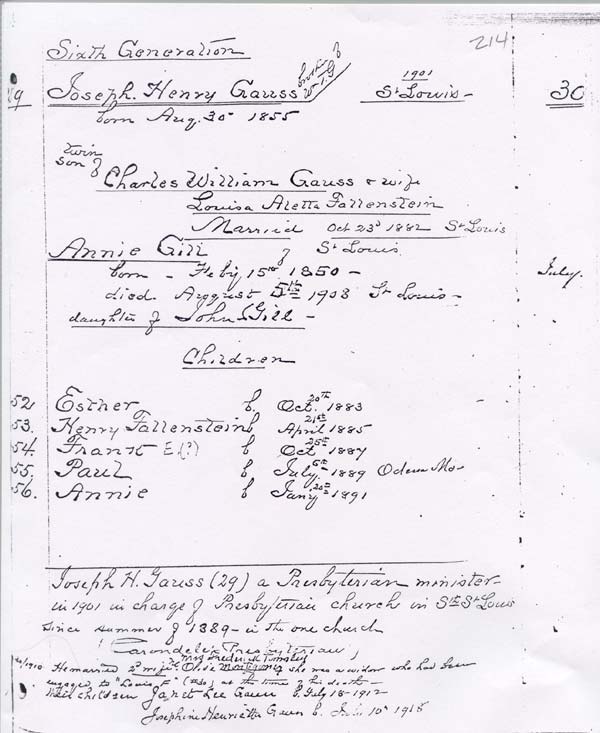 214
Sixth Generation
29 Joseph. Henry Gauss brother of Wm T. G 1901 St Louis - 30
born Aug. 30th 1855
twin
son of
Charles William Gauss & wife
Louisa Aletta Fallenstein
Married Oct 23d 1882 St Louis
Annie Gill of St Louis
born - Feby 15th 1850 - July.
died. August 5th 1903 St Louis -
daughter of John Gill -
Children
52 Esther b. Oct. 20th 1883
53. Henry Fallenstein b April 21st 1885
54. Frank E(?) b Oct 25th 1887
55. Paul b July 6th 1889 Odessa Mo-
56. Annie b Jany 20th 1891
Joseph H. Gauss (29) a Presbyterian minister-
in 1901 in charge of Presbyterian church in St Louis
since summer of 1889 - in the one church
Carondelet Presbyterian
1910 He married Mrs Frederick Tinsley
Olive Montgomery she was a widow who had been
engaged to "Louis F" at the time of his death -
their children Janet Lee Gauss b. July 18-1912
Josephine Henrietta Gauss b. 10th 1915